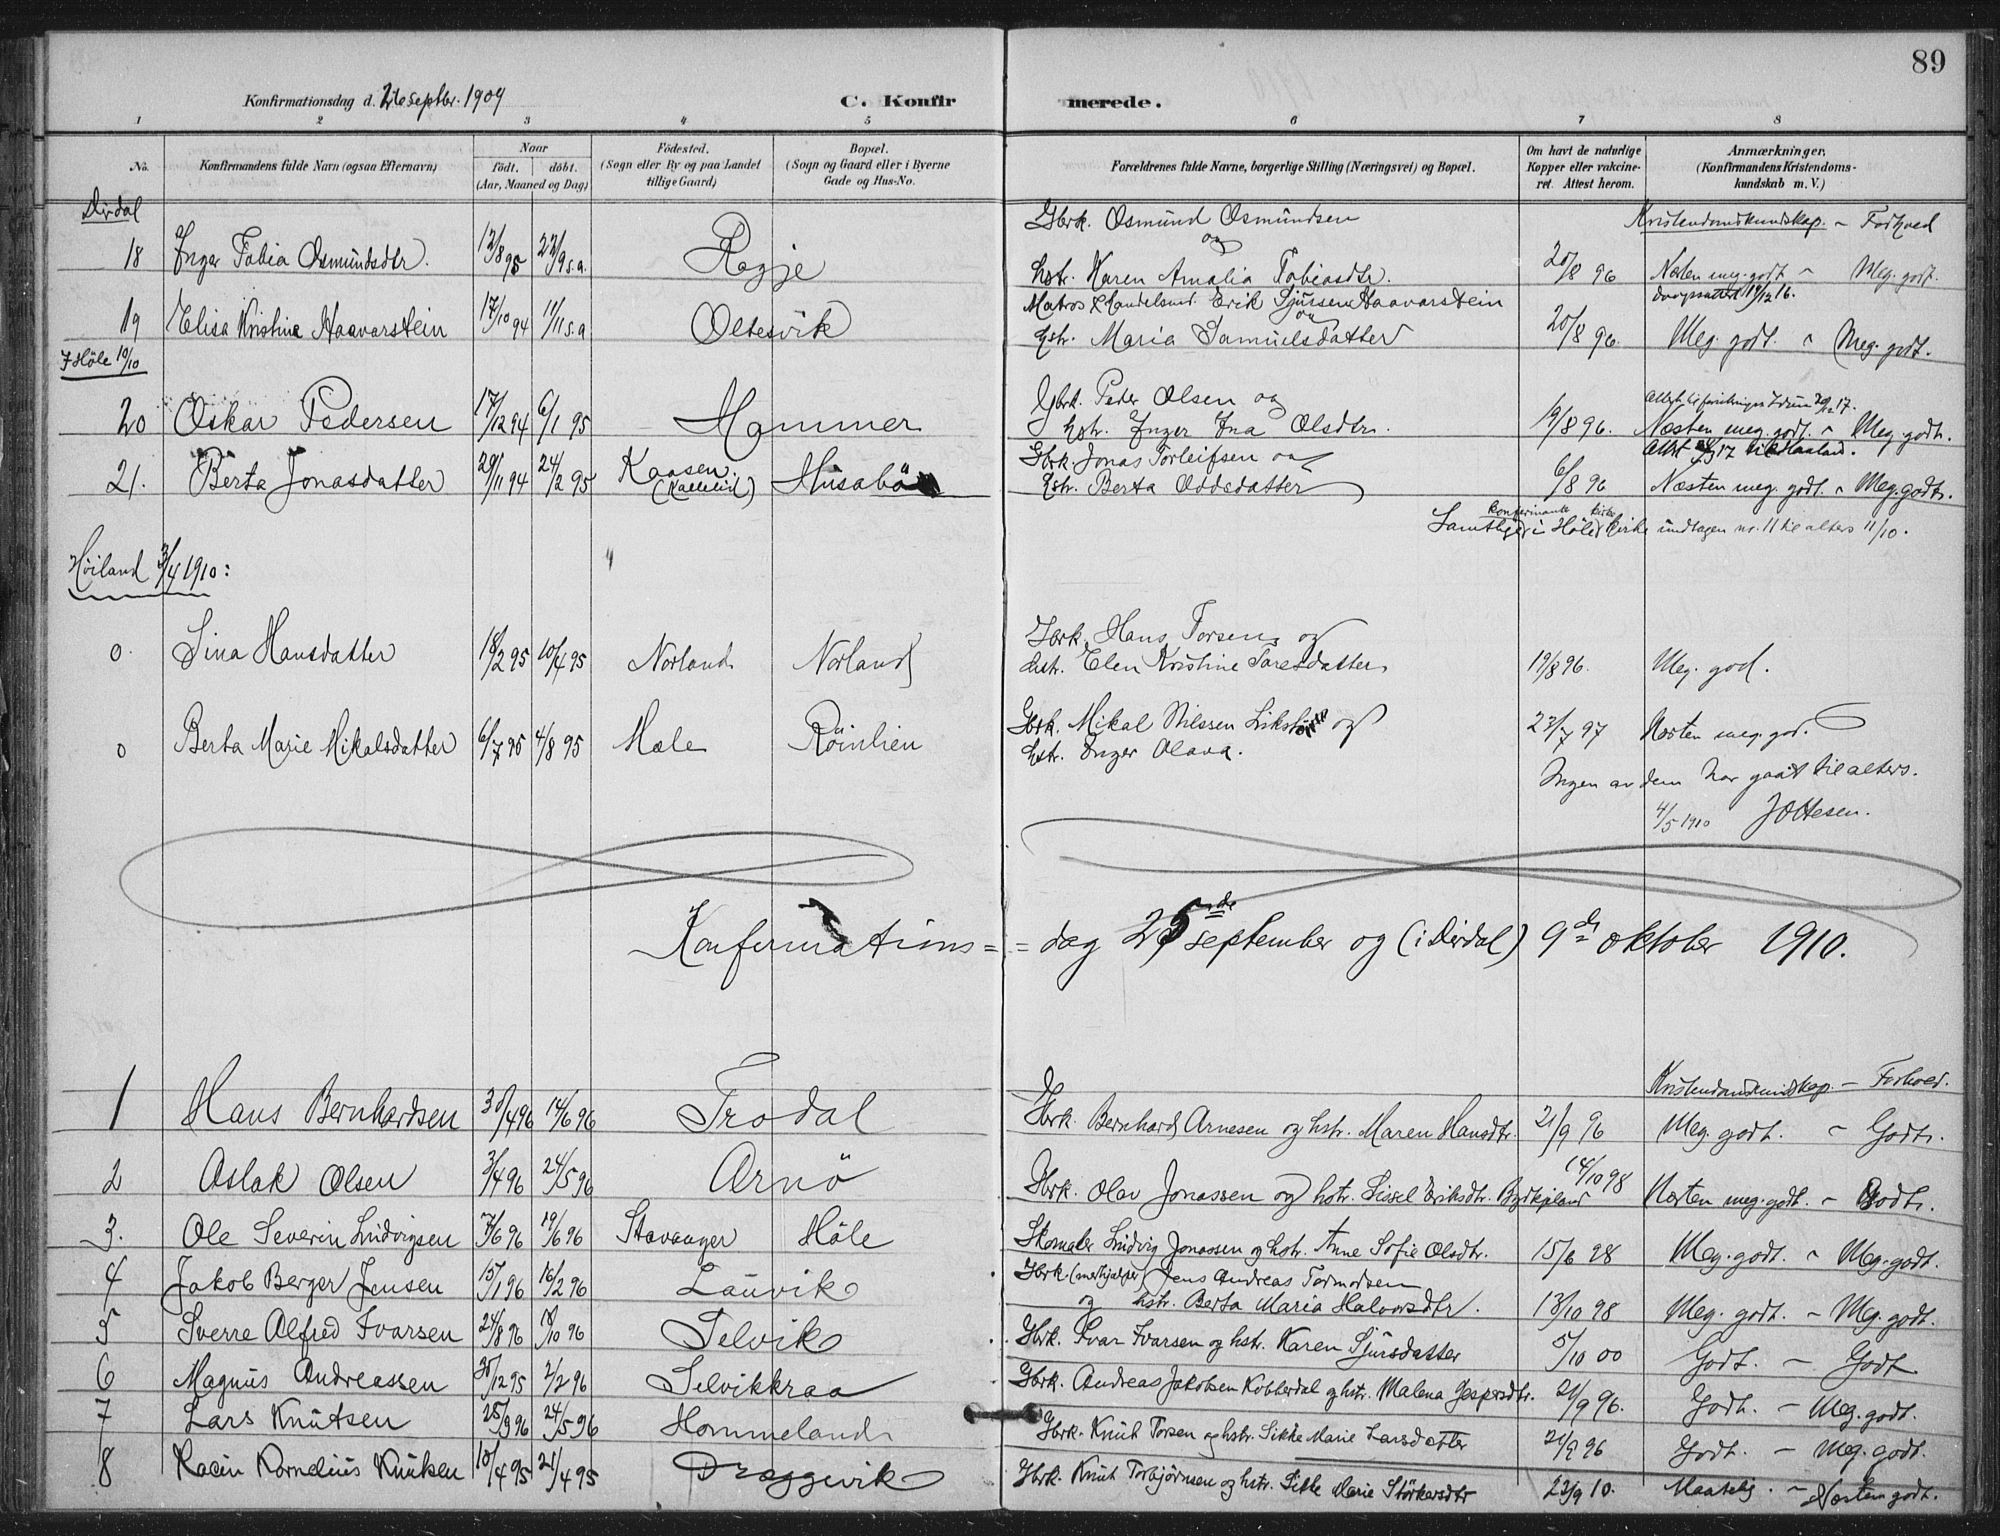 89
Konfirmationsdag d. 26 septbr. 1909 C. Konfirmerede.
1 2 3 4 5 6 7 8
No. Konfirmandens fulde Navn (ogsaa Efternavn) Naar født. døbt. (Aar, Maaned og Dag) Fødested. (Sogn eller By og paa Landet tillige Gaard) Bopæl. (Sogn og Gaard eller i Byerne Gade og Hus-No. Forældrenes fulde Navne, borgerlige Stilling (Næringsvei) og Bopæl. Om havt de naturlige Kopper eller vakcineret. Attest herom. Anmærkninger. (Konfirmandens Kristendomskundskab m. V.)
Dirdal
Gbrk. Osmund Osmundsen og Kristendomskundskap. - Forhold
18 Inger Tobia Osmundsdtr. 12/8 95 22/9 s.a. Ragje hstr. Karen Amalia Tobiasdtr. 20/8 96 Næsten meg. godt - Meg. godt.
Matros & Handelsmd. Erik Sjursen Haavarstein og 19/12 16.
19 Elisa Kristine Haavarstein 17/10 94 11/11 s.a Oltesvik hstr. Maria Samuelsdatter 20/8 96. Meg. godt. - Meg. godt.
I Høle 10/10
Gbrk. Peder Olsen og
20 Oskar Pedersen 17/12 94 6/1 95 Hammer hstr. Inger Ina Olsdtr. 19/8 96. Næsten meg. godt. - Meg. godt.
Gbrk. Jonas Torleifsen og
21. Berta Jonasdatter 29/11 94 24/2 95 Kaasen Husabö hstr. Berta Oddsdatter 6/8 96 Næsten meg. godt. - Meg. godt.
Samtlige konfirmante i Høle kirke undtagen no. 11 til alters 11/10.
Høiland 3/4 1910:
Gbrk. Hans Torsen og
0. Sina Hansdatter 18/2 95 10/4 95 Norland Norland hstr. Elen Kristine Taresdatter 19/8 96. Meg. god.
Gbrk. Mikal Nilssen og
0 Berta Marie Mikalsdatter 6/7 95 4/8 95 Hæle Röinlien hstr. Inger Olava. 23/7 97 Næsten meg. god.
Ingen av dem har gaat til alters.
4/5 1910
Konfermations = = dag 25de september og (i Dirdal) 9de oktober 1910.
Kristendomskundskap. - Forhold.
1 Hans Bernhardsen 30/4 96 14/6 96 Frodal Gbrk. Bernhard Arnesen og hstr. Maren Hansdtr. 21/9 96 Meg. godt. - Godt.
2 Aslak Olsen 3/4 96 24/5 96 Arnö Gbrk. Olav Jonassen og hstr. Sissel Eriksdtr. 14/10 98 Næsten meg. godt. - Godt.
3. Ole Severin Ludvigsen 7/6 96 19/6 96 Stavanger Höle Skomaker Ludvig Jonassen og hstr. Anne Sofie Olsdtr. 15/6 98 Meg. godt. - Meg. godt.
Gbrk. Jens Andreas Tormodsen
4 Jakob Berger Jensen 15/1 96 16/2 96 Lauvik og hstr. Berta Maria Halvorsdtr. 13/10 98 Meg. godt. - Meg. godt.
5 Sverre Alfred Ivarsen 24/8 96 18/10 96 Selvik Gbrk. Ivar Ivarsen og hstr. Karen Sjursdatter 5/10 00 Godt. - Godt
6 Magnus Andreassen 30/12 95 2/2 96 Selvikkraa Gbrk. Andreas Jakobsen Kobberdal og hstr. Malena Jespersdtr. 21/9 96. Godt. - Meg. godt.
7 Lars Knutsen 25/3 96 24/5 96 Hommeland Gbrk. Knut Torsen og hstr. Sikke Marie Larsdatter 21/9 96 Godt. - Meg. godt.
8 Karin Kornelius Knutsen 10/4 95 21/4 95 Dreggevik Gbrk. Knut Torbjørnsen og hstr. Sikke Marie Störkersdtr 23/9 10. Maatelig. - Næsten godt.